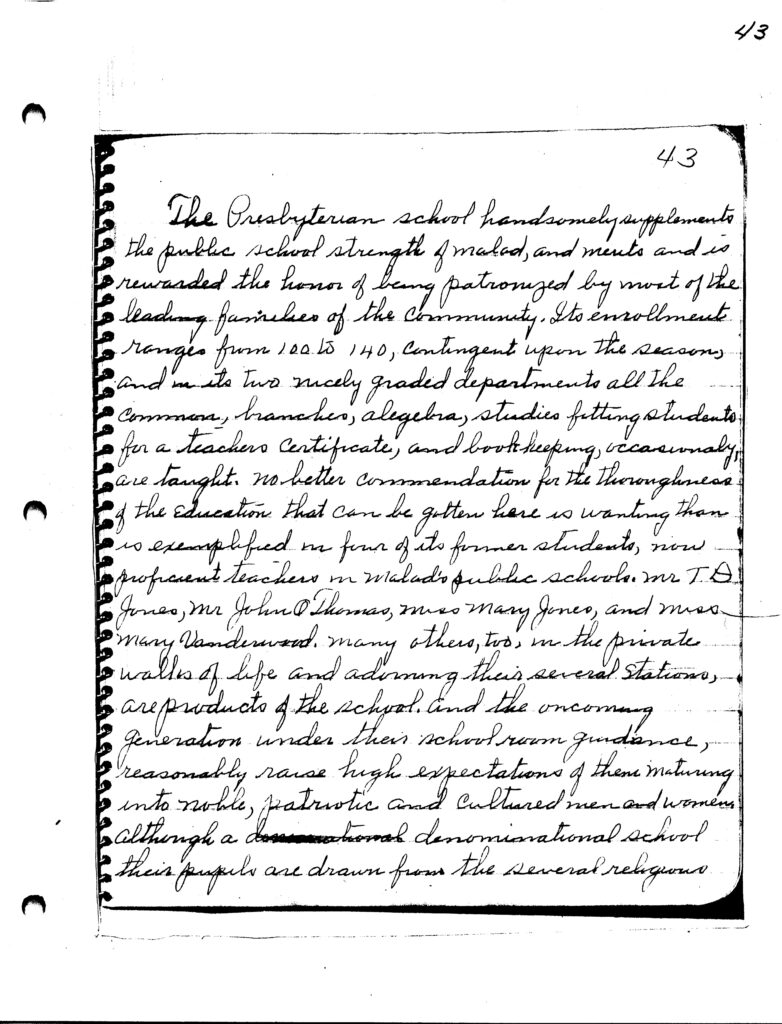 43
43
The Presbyterian school handsomely supplements
the public school strength of malad, and merits and is
rewarded the honor of being patronized by most of the
leading families of the community. Its enrollment
ranges from 100 to 140, contingent upon the season,
and in its two nicely graded departments all the
common, branches, alegebra, studies fitting students
for a teachers certificate, and bookkeeping, occasionaly,
are taught. no better commendation for the thoroughness
of the Education that can be gotten here is wanting than
is exemplified in four of its former students, now
proficient teachers in Malad's public schools. mr T. D
Jones, Mr John O Thomas, miss Mary Jones, and miss
Mary Vanderwood. many others, too, in the private
walks of life and adorning their several Stations,
are products of the school. and the oncoming
generation under their school room guidance,
reasonably raise high expectations of them maturing
into noble, patriotic and cultured men and women.
although a denominational school
their pupils are drawn from the several religious